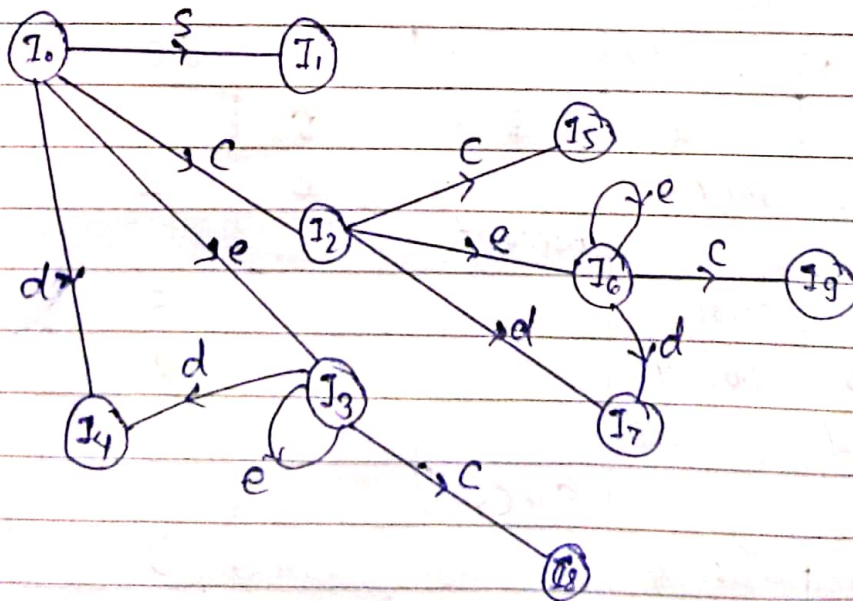 I₀ S I₁
C C I₅
e
I₂ e I₆ C I₉
e
d d d
d I₃
I₄ I₇
e C
I₈